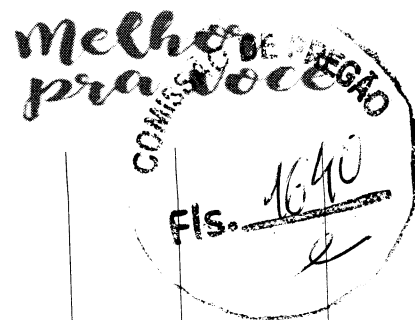 Melhor
pra você
COMISSÃO DE PREGÃO
Fls. 1640